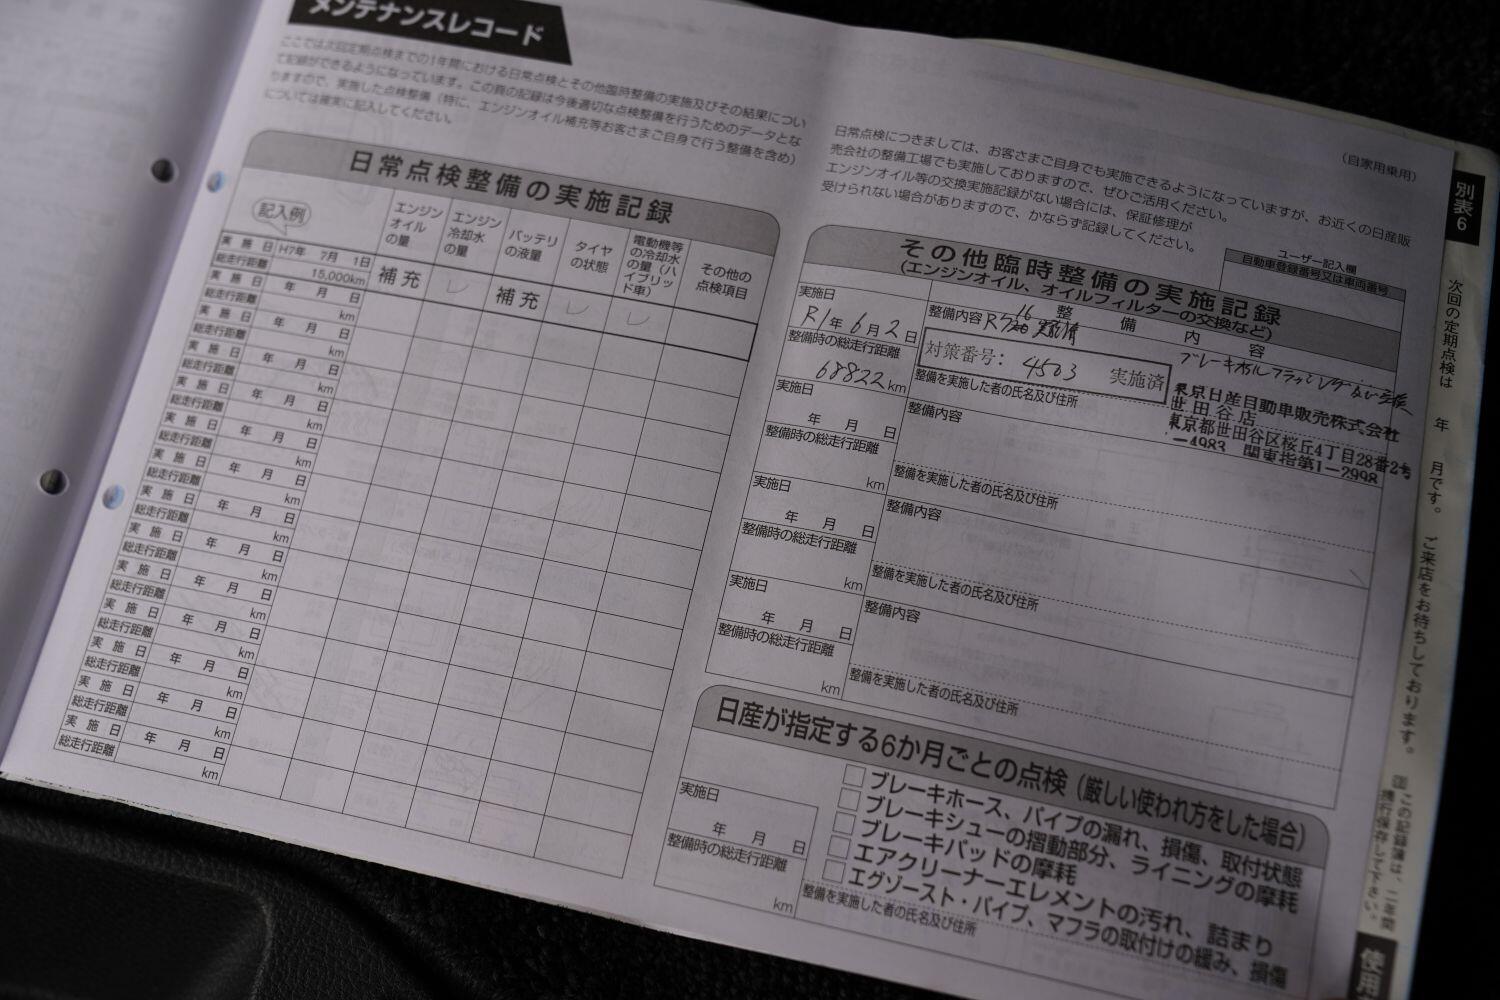 メンテナンスレコード
ここでは次回定期点検までの1年間における日常点検とその他臨時整備の実施及びその結果につい
て記録ができるようになっています。この頁の記録は今後適切な点検整備を行うためのデータとな
りますので、実施した点検整備(特に、エンジンオイル補充等お客さまご自身で行う整備を含め)
については確実に記入してください。
日常点検整備の実施記録
記入例
エンジン
オイル
の量
エンジン
冷却水
の量
バッテリ
の液量
タイヤ
の状態
電動機等
の冷却水
の量(ハ
イブリッ
ド車)
その他の
点検項目
実施日 H7年 7月 1日
総走行距離 15,000km
補充
補充
実施日 年 月 日
総走行距離 km
実施日 年 月 日
総走行距離 km
実施日 年 月 日
総走行距離 km
実施日 年 月 日
総走行距離 km
実施日 年 月 日
総走行距離 km
実施日 年 月 日
総走行距離 km
実施日 年 月 日
総走行距離 km
実施日 年 月 日
総走行距離 km
実施日 年 月 日
総走行距離 km
実施日 年 月 日
総走行距離 km
実施日 年 月 日
総走行距離 km
実施日 年 月 日
総走行距離 km
実施日 年 月 日
総走行距離 km
(自家用乗用)
日常点検につきましては、お客さまご自身でも実施できるようになっていますが、お近くの日産販
売会社の整備工場でも実施しておりますので、ぜひご活用ください。
エンジンオイル等の交換実施記録がない場合には、保証修理が
受けられない場合がありますので、かならず記録してください。
ユーザー記入欄
自動車登録番号又は車両番号
その他臨時整備の実施記録
(エンジンオイル、オイルフィルターの交換など)
実施日
R1年6月2日
整備時の総走行距離
68822km
整備内容
整備内容
対策番号: 4503 実施済
整備を実施した者の氏名及び住所
東京日産自動車販売株式会社
世田谷店
東京都世田谷区桜丘4丁目28番2号
ー4983 関東指第1ー2998
実施日
年 月 日
整備時の総走行距離
km
整備内容
整備を実施した者の氏名及び住所
実施日
年 月 日
整備時の総走行距離
km
整備内容
整備を実施した者の氏名及び住所
実施日
年 月 日
整備時の総走行距離
km
整備内容
整備を実施した者の氏名及び住所
日産が指定する6か月ごとの点検(厳しい使われ方をした場合)
実施日
年 月 日
整備時の総走行距離
km
ブレーキホース、パイプの漏れ、損傷、取付状態
ブレーキシューの摺動部分、ライニングの摩耗
ブレーキパッドの摩耗
エアクリーナーエレメントの汚れ、詰まり
エグゾースト・パイプ、マフラの取付けの緩み、損傷
整備を実施した者の氏名及び住所
別表6
次回の定期点検は 年 月です。 ご来店をお待ちしております。
この記録簿は、二年間
携行保存して下さい。
使用